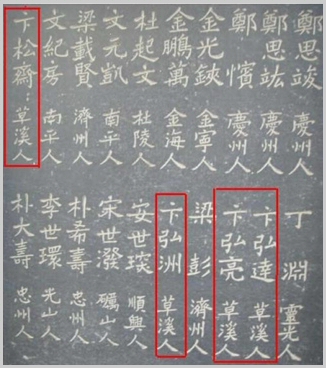 鄭思竣 慶州人
鄭思竑 慶州人
鄭愭 慶州人
金光鋏 金寧人
金鵬萬 金海人
杜起文 杜陵人
文元凱 南平人
梁載賢 濟州人
文紀房 南平人
卞松齋 草溪人
丁淵 靈光人
卞弘達 草溪人
卞弘亮 草溪人
梁彭 濟州人
卞弘洲 草溪人
安世琰 順興人
宋世潑 礪山人
朴希壽 忠州人
李世環 光山人
朴大壽 忠州人